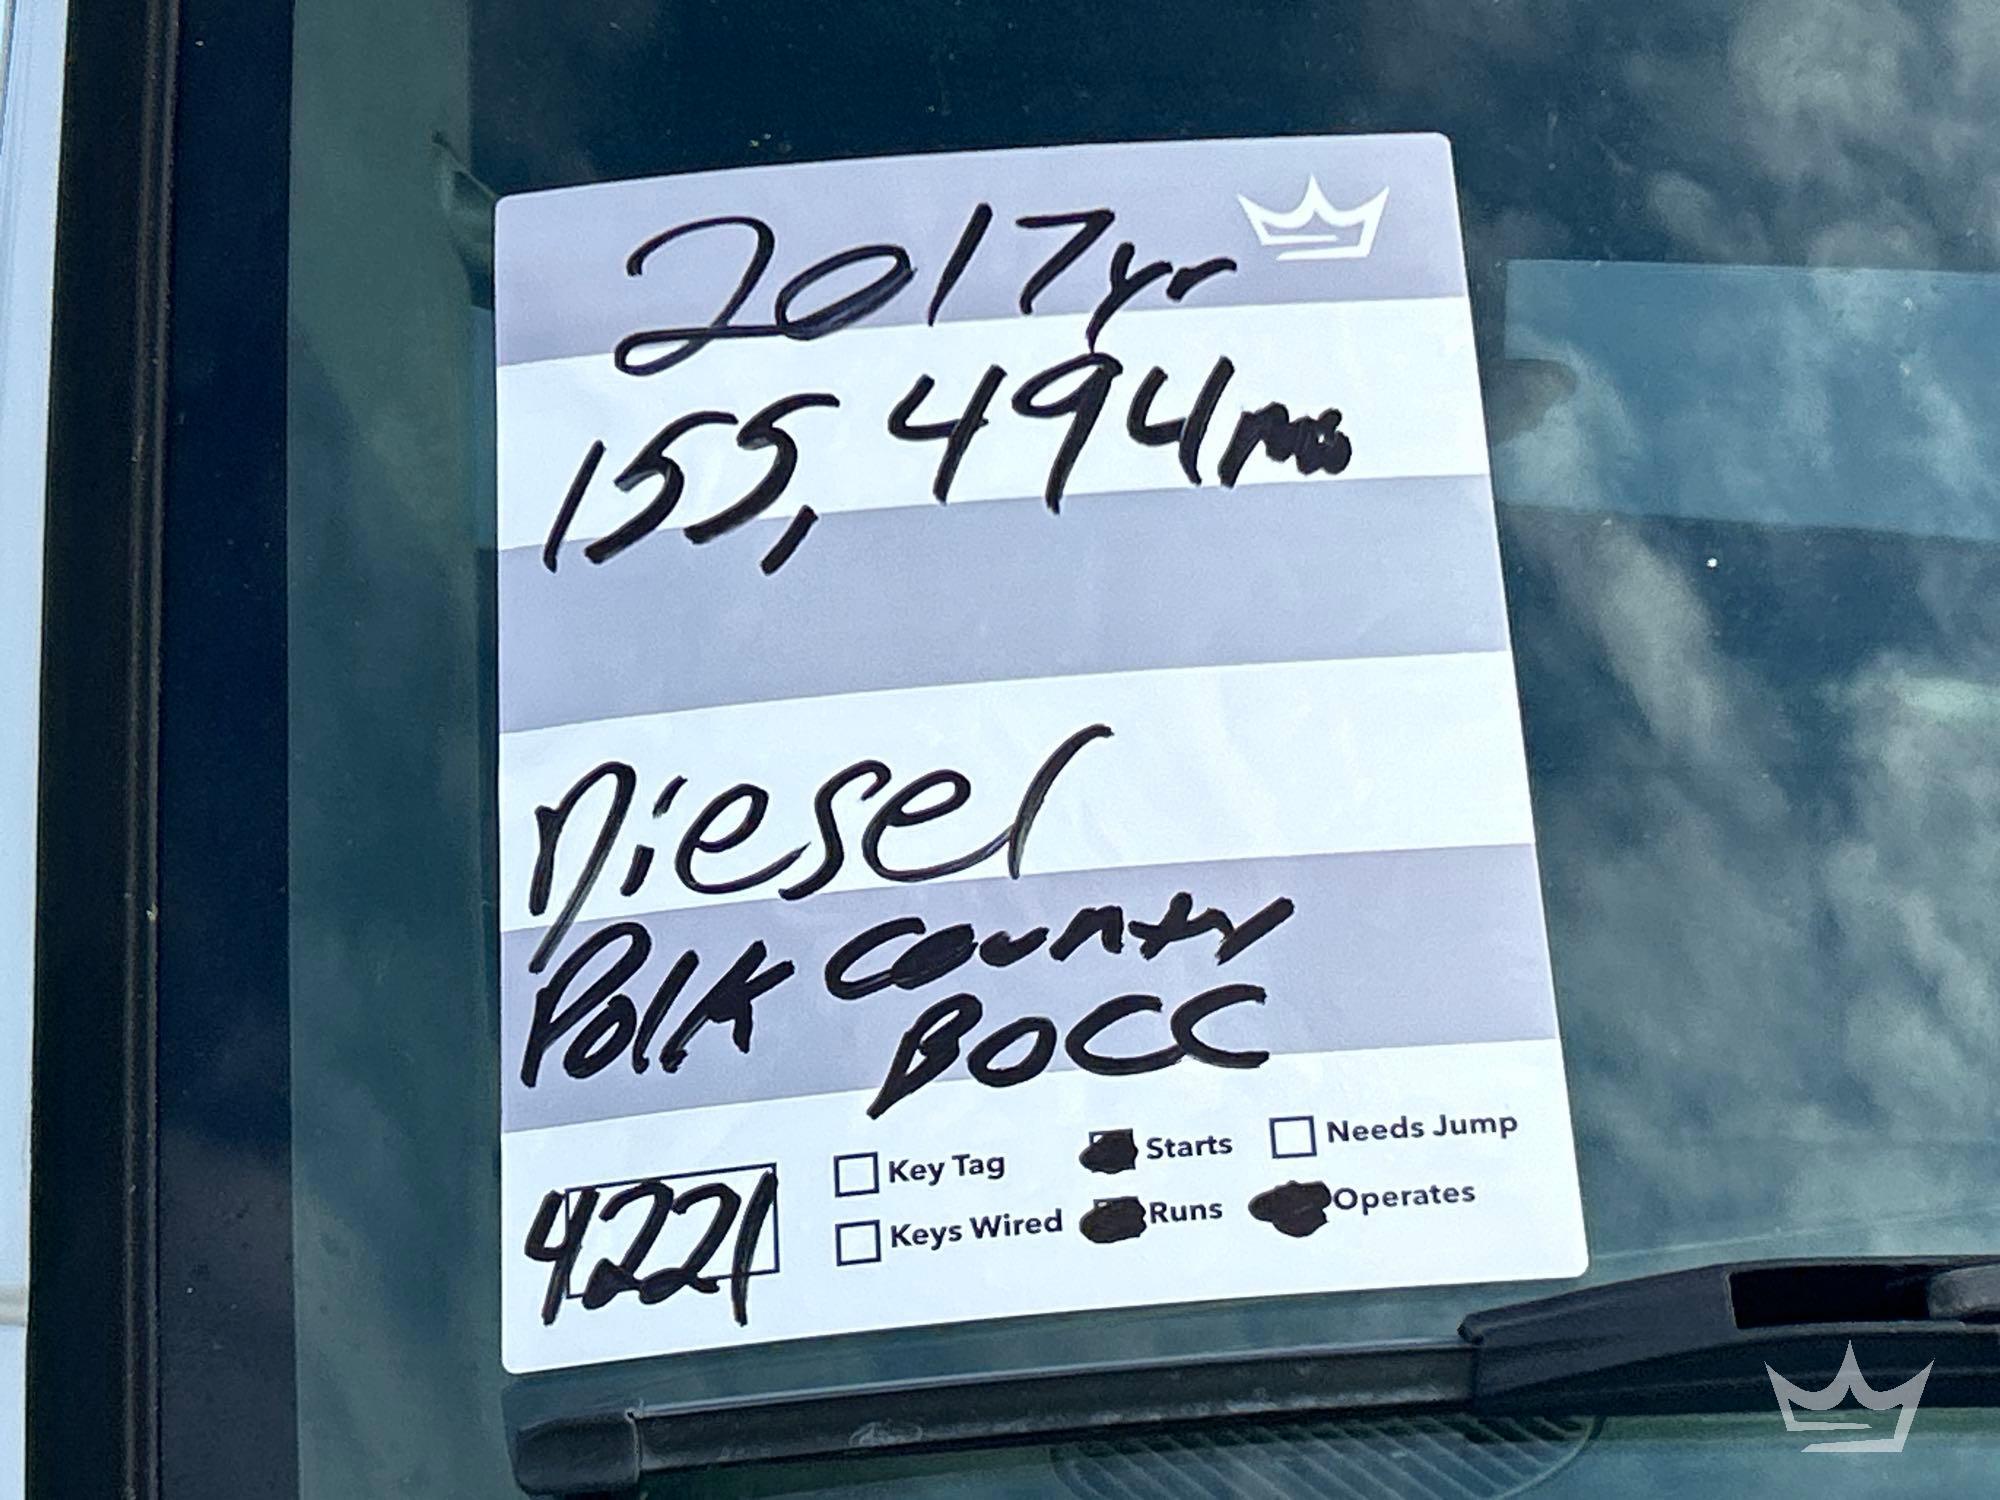 2017yr
155,494mi
Diesel
Polk County
BOCC
4221
Key Tag
Starts
Needs Jump
Keys Wired
Runs
Operates